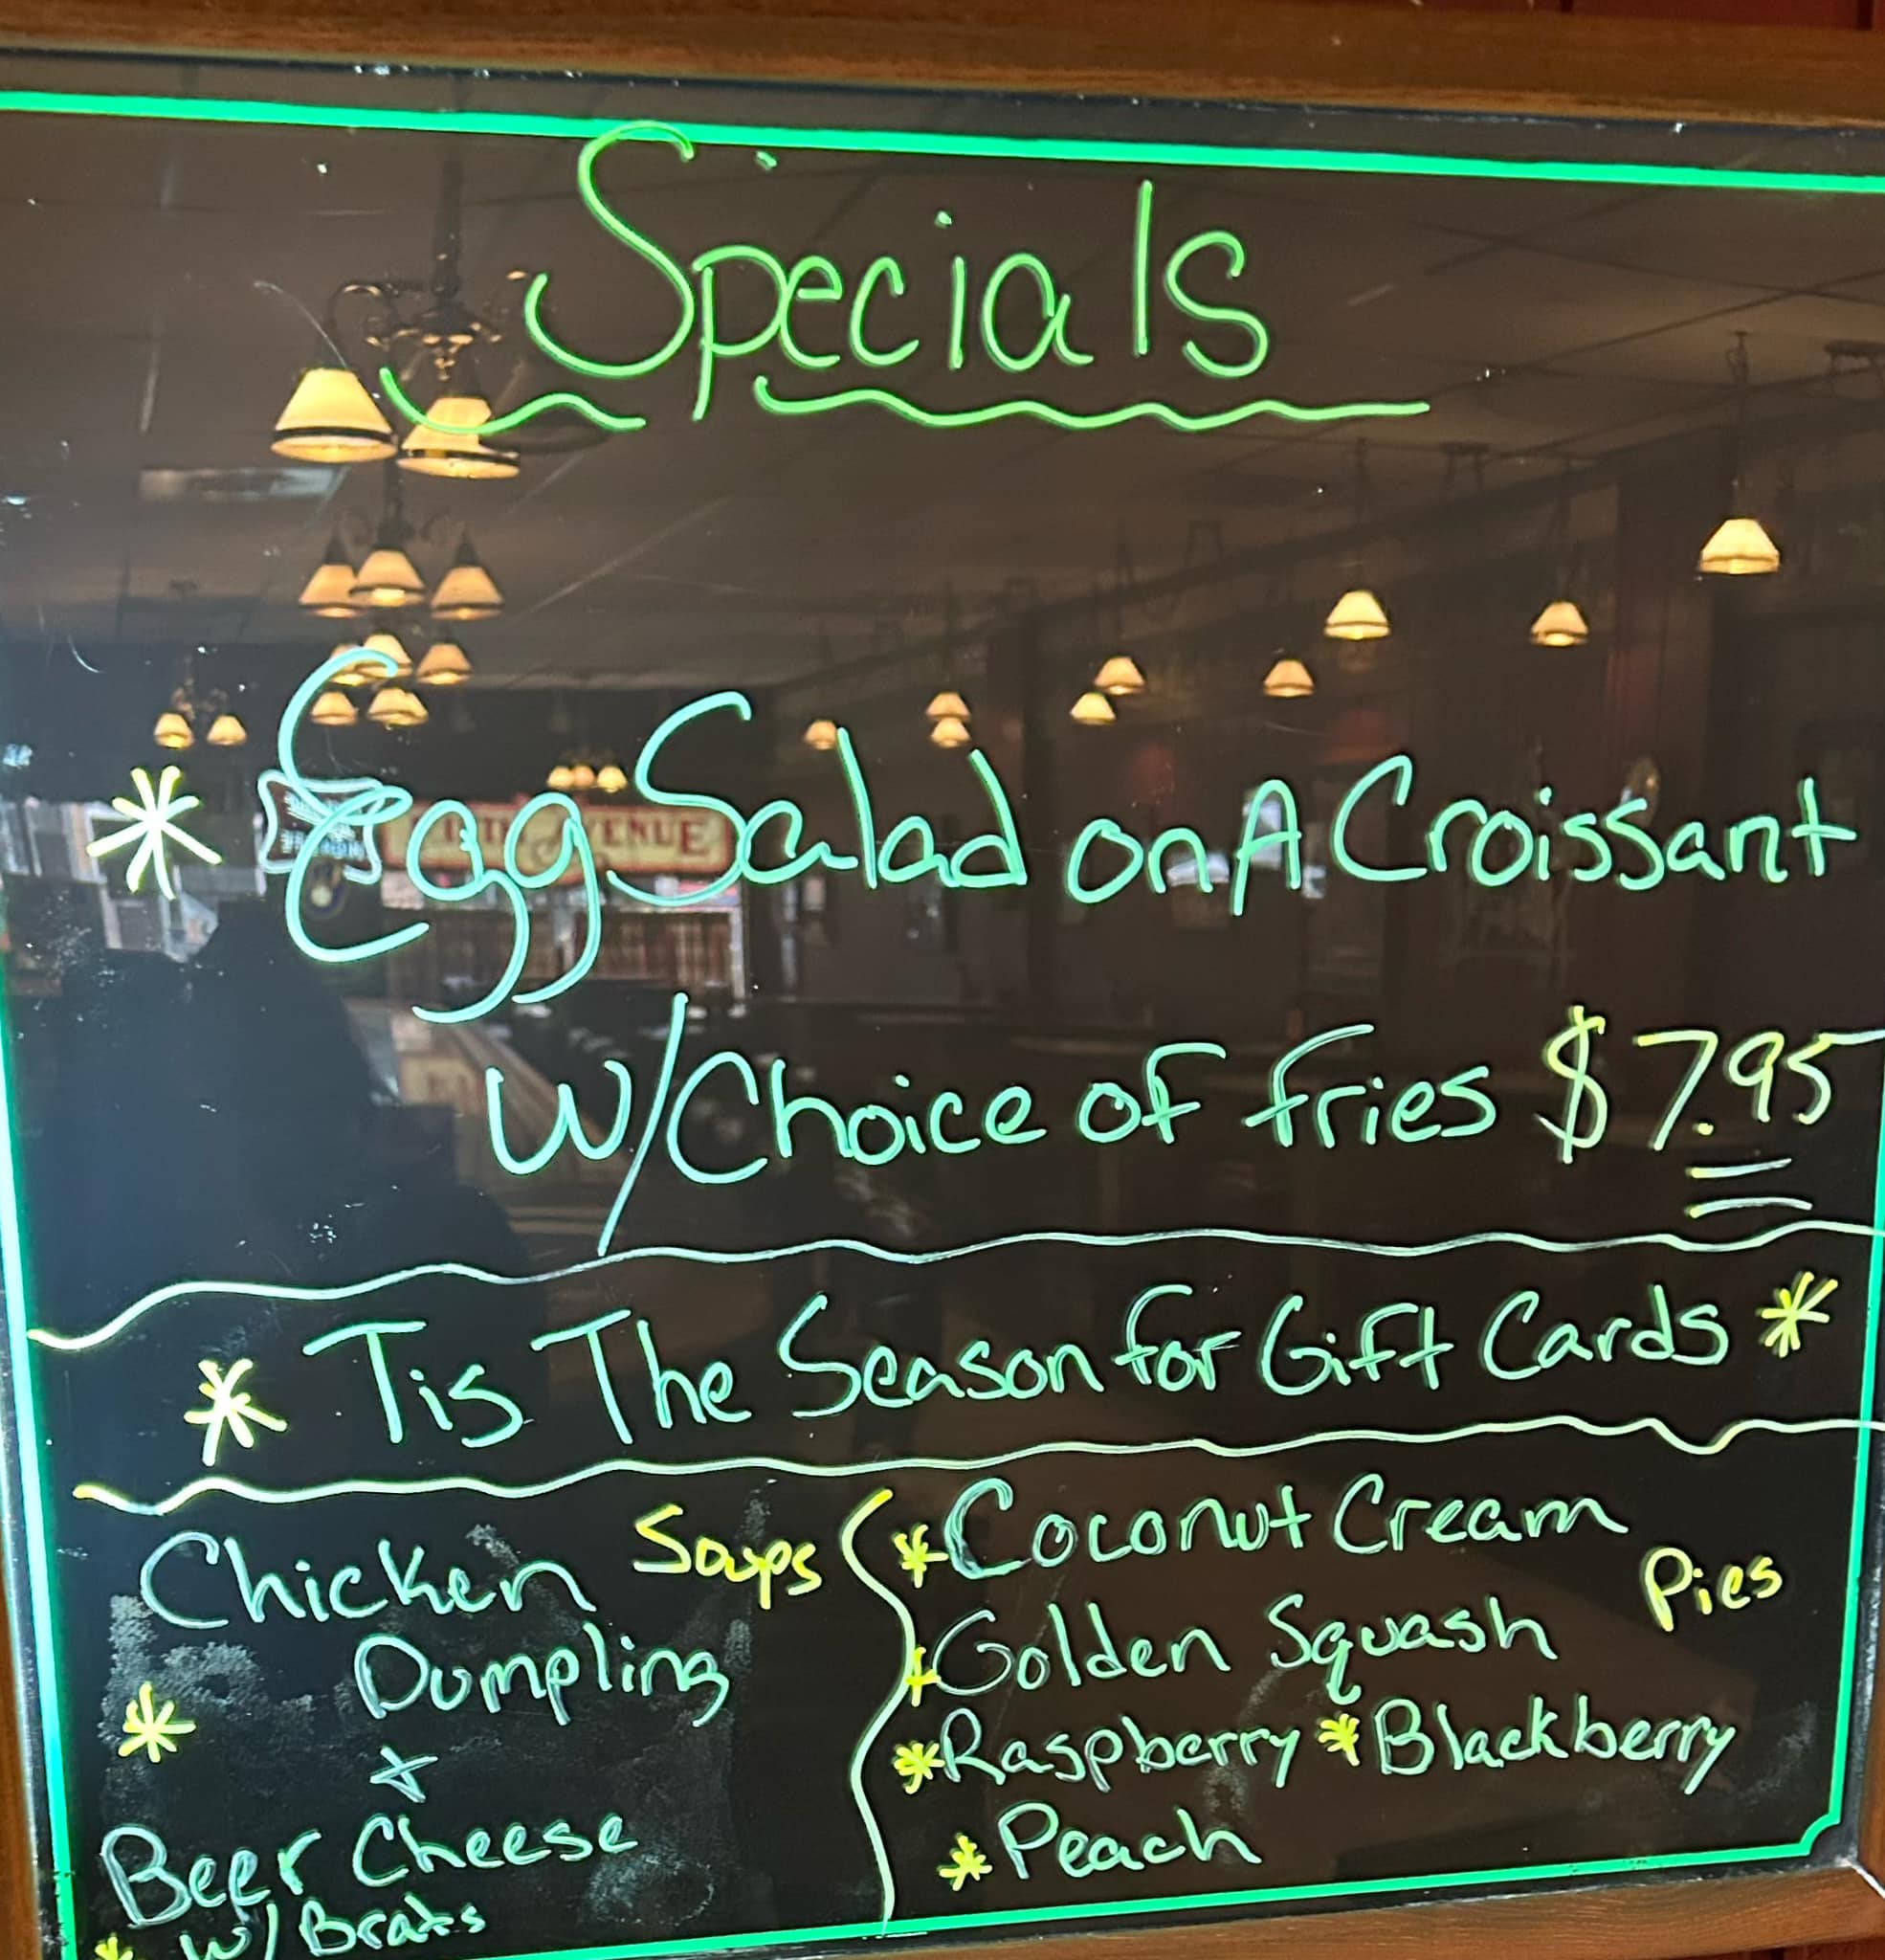 Specials
* Egg Salad on A Croissant
W/Choice of fries $7.95
* Tis The Season for Gift Cards *
Soups
Chicken
Dumpling
*
+
Beer Cheese
* W/ Brats
Pies
* Coconut Cream
* Golden Squash
* Raspberry * Blackberry
* Peach
AVENUE